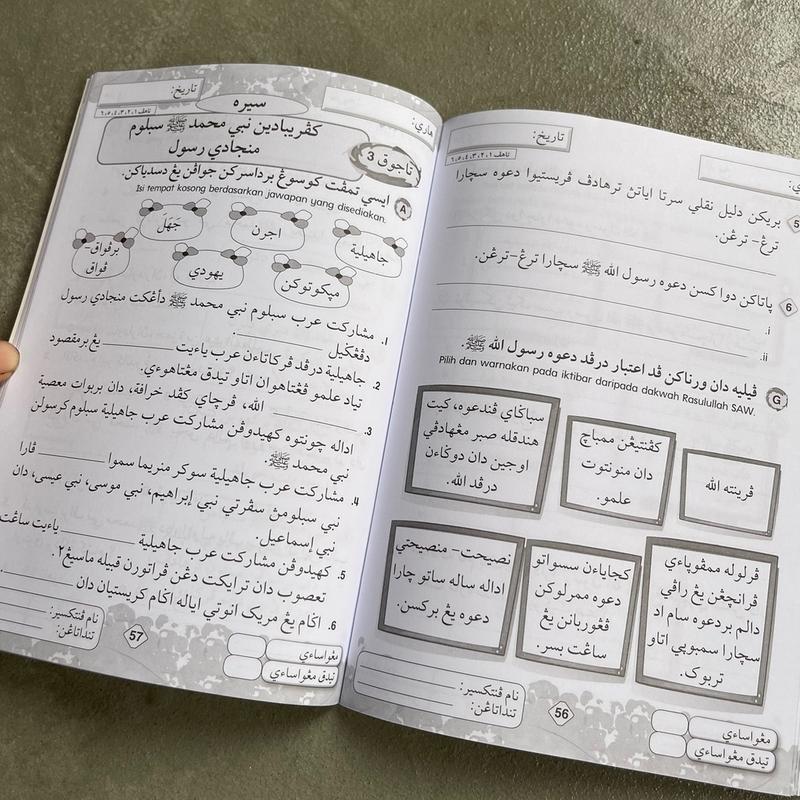 تاريخ:
تاهڤ ١،٢،٣،٤،٥،٦
5 بريكن دليل نقلي سرتا اياتڽ ترهادڤ ڤريستيوا دعوه سچارا
ترڠ- ترڠن.
6 ڽاتاكن دوا كسن دعوه رسول الله ﷺ سچارا ترڠ-ترڠن.
i.
ii.
G ڤيليه دان ورناكن ڤد اعتبار درڤد دعوه رسول الله ﷺ.
Pilih dan warnakan pada iktibar daripada dakwah Rasulullah SAW.
ڤرينته الله
كڤنتيڠن ممباچ
دان منونتوت
علمو.
سباڬاي ڤندعوه، كيت
هندقله صبر مڠهادڤي
اوجين دان دوڬاءن
درڤد الله.
ڤرلوله ممڤوڽاءي
ڤرانچڠن يڠ راڤي
دالم بردعوه سام اد
سچارا سمبوڽي اتاو
تربوك.
كجاياءن سسواتو
دعوه ممرلوكن
ڤڠوربانن يڠ
ساڠت بسر.
نصيحت- منصيحتي
اداله ساله ساتو چارا
دعوه يڠ بركسن.
مڠواساءي
تيدق مڠواساءي
نام ڤنتكسير:
تنداتاڠن:
56
هاري:
تاريخ:
تاهڤ ١،٢،٣،٤،٥،٦
سيره
تاجوق 3
كڤريبادين نبي محمد ﷺ سبلوم
منجادي رسول
A ايسي تمڤت كوسوڠ برداسركن جواڤن يڠ دسدياكن.
Isi tempat kosong berdasarkan jawapan yang disediakan.
جاهيلية
اجرن
جَهَلَ
ميكوتوكن
يهودي
برڤواق-
ڤواق
1. مشاركت عرب سبلوم نبي محمد ﷺ دأڠكت منجادي رسول
دڤڠكيل ____.
2. جاهيلية درڤد ڤركاتاءن عرب ياءيت ____ يڠ برمقصود
تياد علمو ڤڠتاهوان اتاو تيدق مڠتاهوءي.
3. ____ الله، ڤرچاي كڤد خرافة، دان بربوات معصية
اداله چونتوه كهيدوڤن مشاركت عرب جاهيلية سبلوم كرسولن
نبي محمد ﷺ.
4. مشاركت عرب جاهيلية سوكر منريما سموا ____ ڤارا
نبي سبلومڽ سڤرتي نبي إبراهيم، نبي موسى، نبي عيسى، دان
نبي إسماعيل.
5. كهيدوڤن مشاركت عرب جاهيلية ____ ياءيت ساڠت
تعصوب دان ترايكت دڠن ڤراتورن قبيله ماسيڠ٢.
6. اڬام يڠ مريك انوتي اياله اڬام كريستيان دان ____.
مڠواساءي
تيدق مڠواساءي
نام ڤنتكسير:
تنداتاڠن:
57